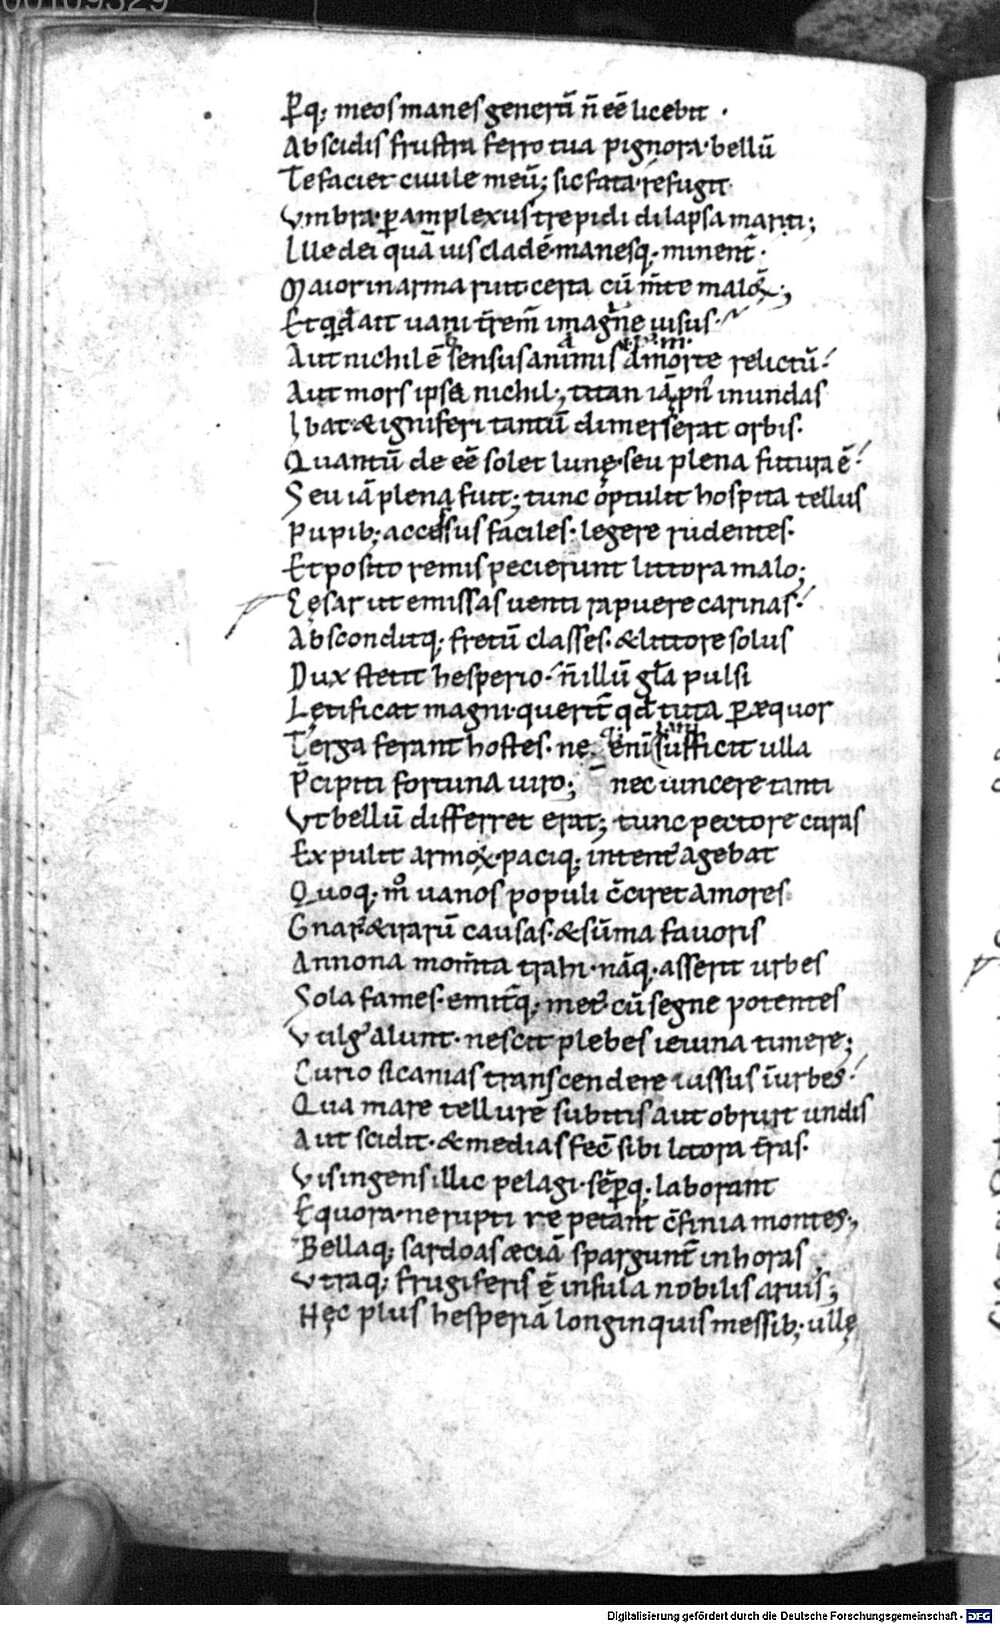 00109329
P̱q; meos manes generū n̄ eē licebit ·
Abscidis frustra ferro tua pignora· bellū
Te faciet ciuile meū; sic fata· refugit·
Vmbra· ꝑ amplexus trepidi dilapsa mariti;
Ille dei quā uis cladē· manesq; minent᷑·
Maior in arma ruit certa cū m̄te maloꝝ;
Et qd̄ ait uani t̄rem̄ imagine uisus·
Aut nichil ē sensus animis a morte relictū·
Aut mors ipsa nichil; titan iā pn̄ in undas
Ibat· & igniferi tantū dimerserat orbis·
Quantū de eē solet lunę· seu plena futura ē·
Seu iā plena fuit; tunc optulit hospita tellus
Pupib; accessus faciles· legere rudentes·
Et posito remis pecierunt littora malo;
Cęsar ut emissas uenti rapuere carinas·
Absconditq; fretū classes· & littore solus
Dux stetit hesperio· n̄ illū gl̄a pulsi
Lętificat magni· querit᷑ qd̄ tuta ꝑ æquor
Terga ferant hostes· neq; enī sufficit ulla
P̄cipiti fortuna uiro; nec uincere tanti
Vt bellū differret erat; tunc pectore curas
Expulit armoꝝ· paciq; intent᷒ agebat
Quoq; m̊ uanos populi c̄ciret amores·
Gnar᷒ & irarū causas· & sūma fauoris
Annona mom̄ta trahi· nāq; asserit urbes
Sola fames· emit᷑q; met᷒ cū segne potentes
Vulg᷒ alunt· nescit plebes ieiuna timere;
Curio sicanias transcendere iussus ī urbes·
Qua mare tellurē subitis aut obruit undis
Aut scidit· & medias fec̄ sibi litora t̄ras·
Vis ingens illic pelagi· sēꝑq; laborant
Equora· ne rupti repetant c̄finia montes;
Bellaq; sardoas æciā spargunt᷑ in horas
Vtraq; frugiferis ē insula nobilis aruis;
Hęc plus hesperiā longinquis messib; ullę
Digitalisierung gefördert durch die Deutsche Forschungsgemeinschaft - DFG